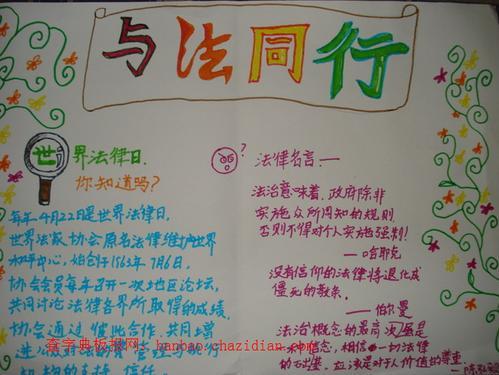 与法同行
世界法律日.
你知道吗?
每年4月22日是世界法律日,
世界法家协会原名法律维护世界
和平中心,始创于1963年7月6日,
协会会员每年召开一次地区论坛,
共同讨论法律各界所取得的成绩.
协会通过彼此合作.共同增
进
信任
?
法律名言:—
法治意味着,政府除非
实施众所周知的规则
否则不得对个人实施强制!
—哈耶克
没有信仰的法律将退化成
僵死的教条.
—伯尔曼
法治概念的最高次层是
一种信念,相信一切法律
应该是对于人价值的尊重.
查字典板报网:hanbao.chazidian.com